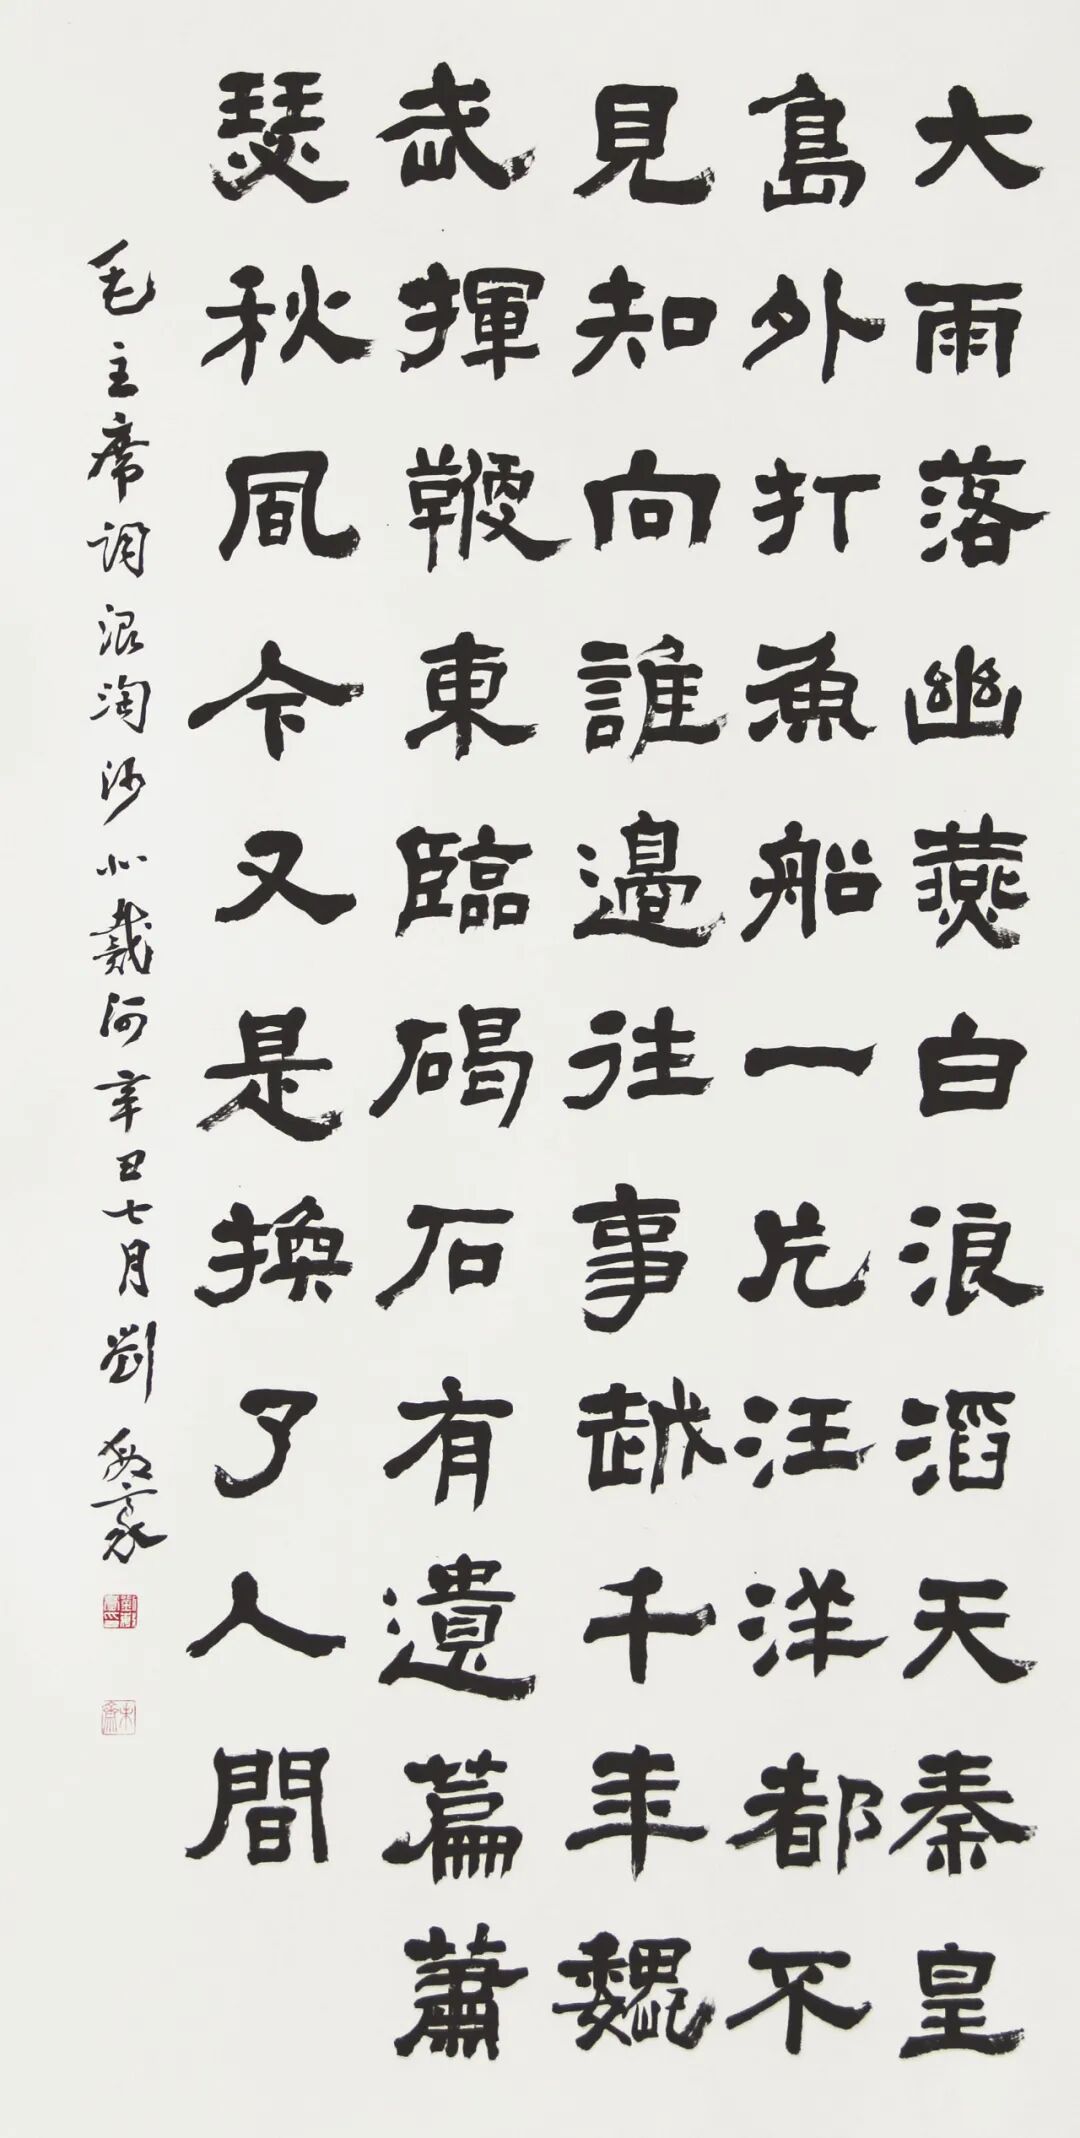 大雨落幽燕白浪滔天秦皇
島外打魚船一片汪洋都不
見知向誰邊往事越千年魏
武揮鞭東臨碣石有遺篇蕭
瑟秋風今又是換了人間
毛主席詞浪淘沙北戴河辛丑七月劉